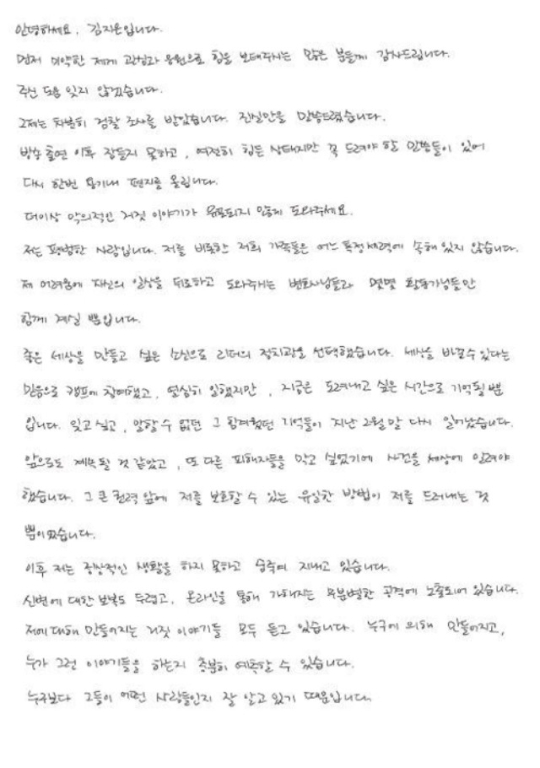 안녕하세요. 김지은입니다.
먼저 미약한 제게 관심과 응원으로 힘을 보태주시는 많은 분들께 감사드립니다.
주신 도움 잊지 않겠습니다.
그제는 차분히 검찰 조사를 받았습니다. 진실만을 말씀드렸습니다.
방송 출연 이후 잠들지 못하고, 여전히 힘든 상태지만 꼭 드려야 할 말씀들이 있어
다시 한번 용기내 편지를 올립니다.
더이상 악의적인 거짓 이야기가 유포되지 않게 도와주세요.
저는 평범한 사람입니다. 저를 비롯한 저희 가족들은 어느 특정 세력에 속해 있지 않습니다.
제 어려움에 자신의 일상을 뒤로하고 도와주시는 변호사님들과 몇몇 활동가님들만
함께 계실 뿐입니다.
좋은 세상을 만들고 싶은 소신으로 리더의 정치관을 선택했습니다. 세상을 바꿀 수 있다는
믿음으로 캠프에 참여했고, 열심히 일했지만, 지금은 도려내고 싶은 시간으로 기억될 뿐
입니다. 잊고 싶고, 말할 수 없던 그 힘겨웠던 기억들이 지난 2월 말 다시 일어났습니다.
앞으로도 계속될 것 같았고, 또 다른 피해자들을 막고 싶었기에 사건을 세상에 알려야
했습니다. 그 큰 권력 앞에 저를 보호할 수 있는 유일한 방법이 저를 드러내는 것
뿐이었습니다.
이후 저는 정상적인 생활을 하지 못하고 숨죽여 지내고 있습니다.
신변에 대한 보복도 두렵고, 온라인을 통해 가해지는 무분별한 공격에 노출되어 있습니다.
저에 대해 만들어지는 거짓 이야기들 모두 듣고 있습니다. 누구에 의해 만들어지고,
누가 그런 이야기들을 하는지 충분히 예측할 수 있습니다.
누구보다 그들이 어떤 사람들인지 잘 알고 있기 때문입니다.